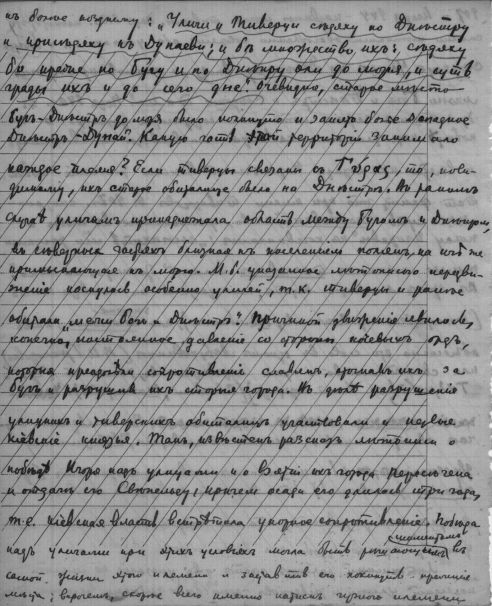 къ более позднему: „Уличи и Тиверци сѣдяху по Днѣстру
и присѣдяху къ Дунаеви; и бѣ множество ихъ; сѣдяху
бо прежде по Бугу и по Днѣпру оли до моря, и суть
грады ихъ и до сего дне". Очевидно, старое мѣсто
Бугъ-Днѣстръ до моря было покинуто и занято более западное
Днѣстръ-Дунай. Какую часть этой территоріи занимало
каждое племя? Если тиверцы связаны съ то, пови-
димому, ихъ старое обиталище было на Днѣстрѣ. Въ
случаѣ уличамъ принадлежала область между Бугомъ и Днѣпромъ,
въ сѣверныхъ частяхъ близкая къ поселеніямъ полянъ, на югѣ же
примыкающая къ морю. М.б. указанное лѣтописью передви-
женіе коснулось особенно уличей, т.к. тиверцы и ранѣе
обитали „межи Богъ и Днѣстръ". Причиной движенія явилось,
конечно, постоянное давленіе со стороны кочевыхъ ордъ,
которыя преодолѣли сопротивленіе славянъ, прогнавъ ихъ за
Бугъ и разрушивъ ихъ старые города. Въ дѣлѣ разрушенія
улицкихъ и тиверскихъ обиталищъ участвовали и первые
кіевскіе князья. Такъ, извѣстенъ разсказъ лѣтописи о
побѣдѣ Игоря надъ уличами и о взятіи ихъ города Пересѣчена
и отдачѣ его Свѣнельду, причемъ осада его длилась три года,
т.е. кіевская власть встрѣтила упорное сопротивленіе. Побѣда
надъ уличами при этихъ условіяхъ могла быть въ
самой жизни этого племени и заставить его покинуть прежнія
мѣста; впрочемъ, скорѣе всего именно натискъ племени